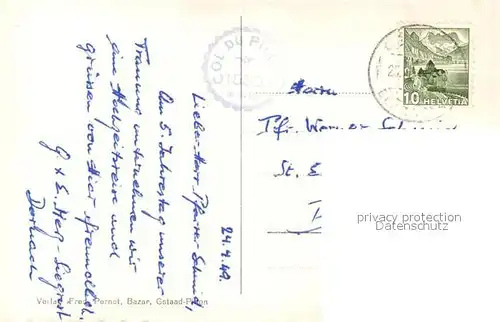 24.4.49.
Lieber Herr Pfarrer Schmid,
Am 5. Jahrestag unserer
Trauung unternehmen wir
eine Hochzeitsreise und
grüssen von hier freundlich.
G + E.
Dornach
COL DU PILLON
HELVETIA
10
Herrn
Pfr. Werner
St.
privacy protection
Datenschutz
Verlag Fred Pernet, Bazar, Gstaad-Pillon